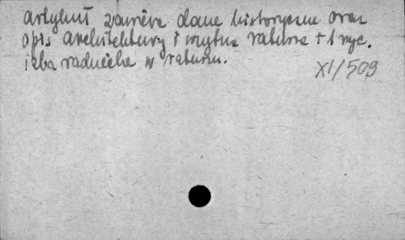 Artykuł zawiera dane historyczne oraz
opis architektury i wnętrz ratusza + 1 ryc.
izba radziecka w ratuszu.
XI/509